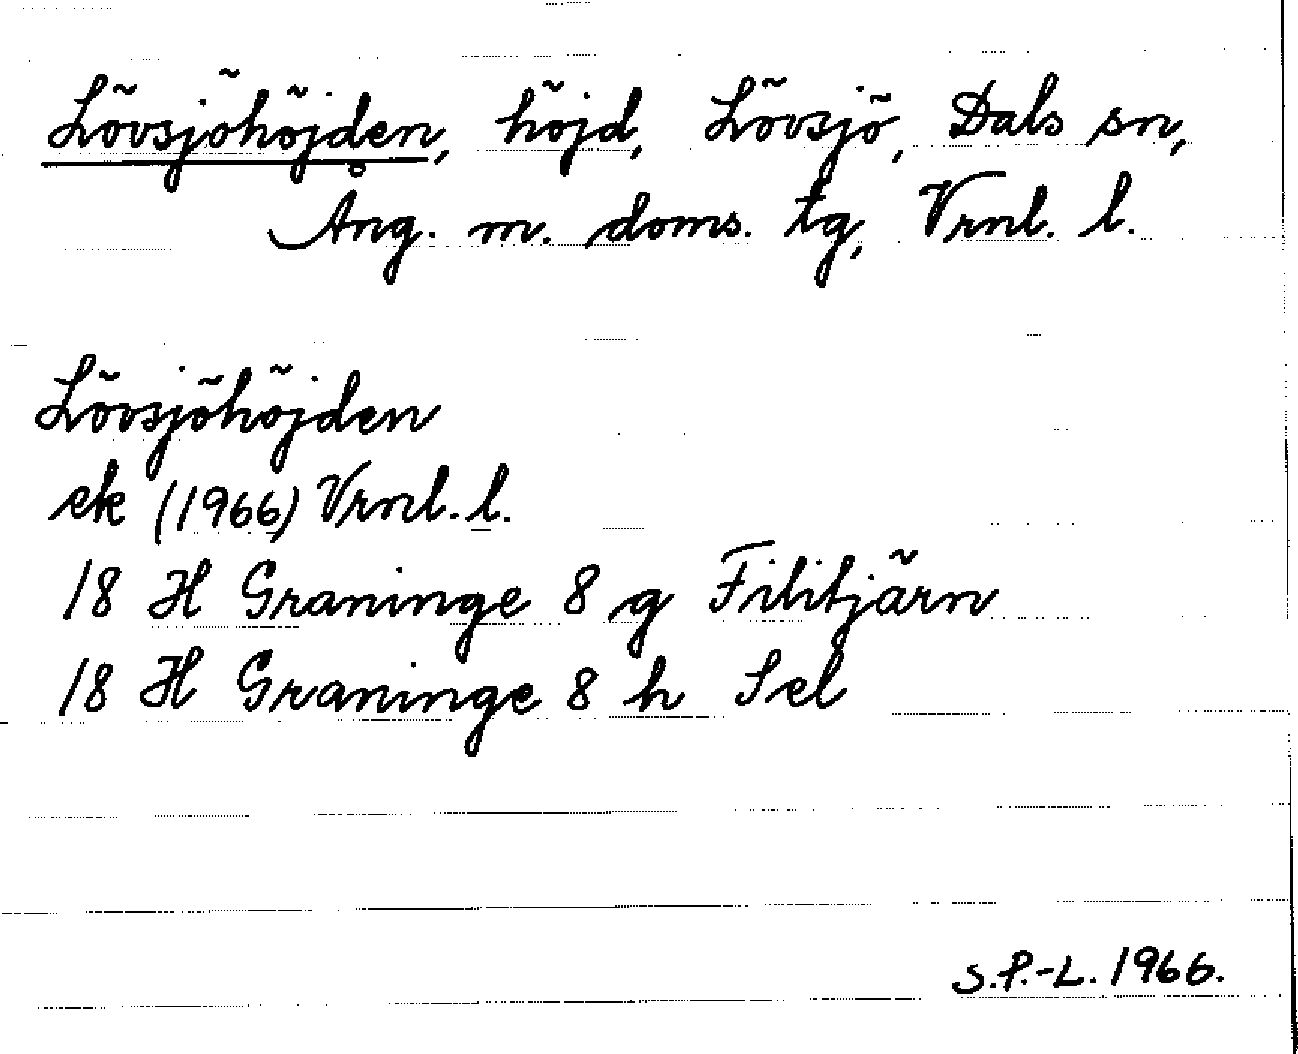 Lövsjöhöjden, höjd, Lövsjö, Dals sn,
Ång. m. doms. tg, Vrnl. l.
Lövsjöhöjden
ek (1966) Vrnl. l.
18 H Graninge 8 g Filitjärn
18 H Graninge 8 h Sel
S.P.-L. 1966.